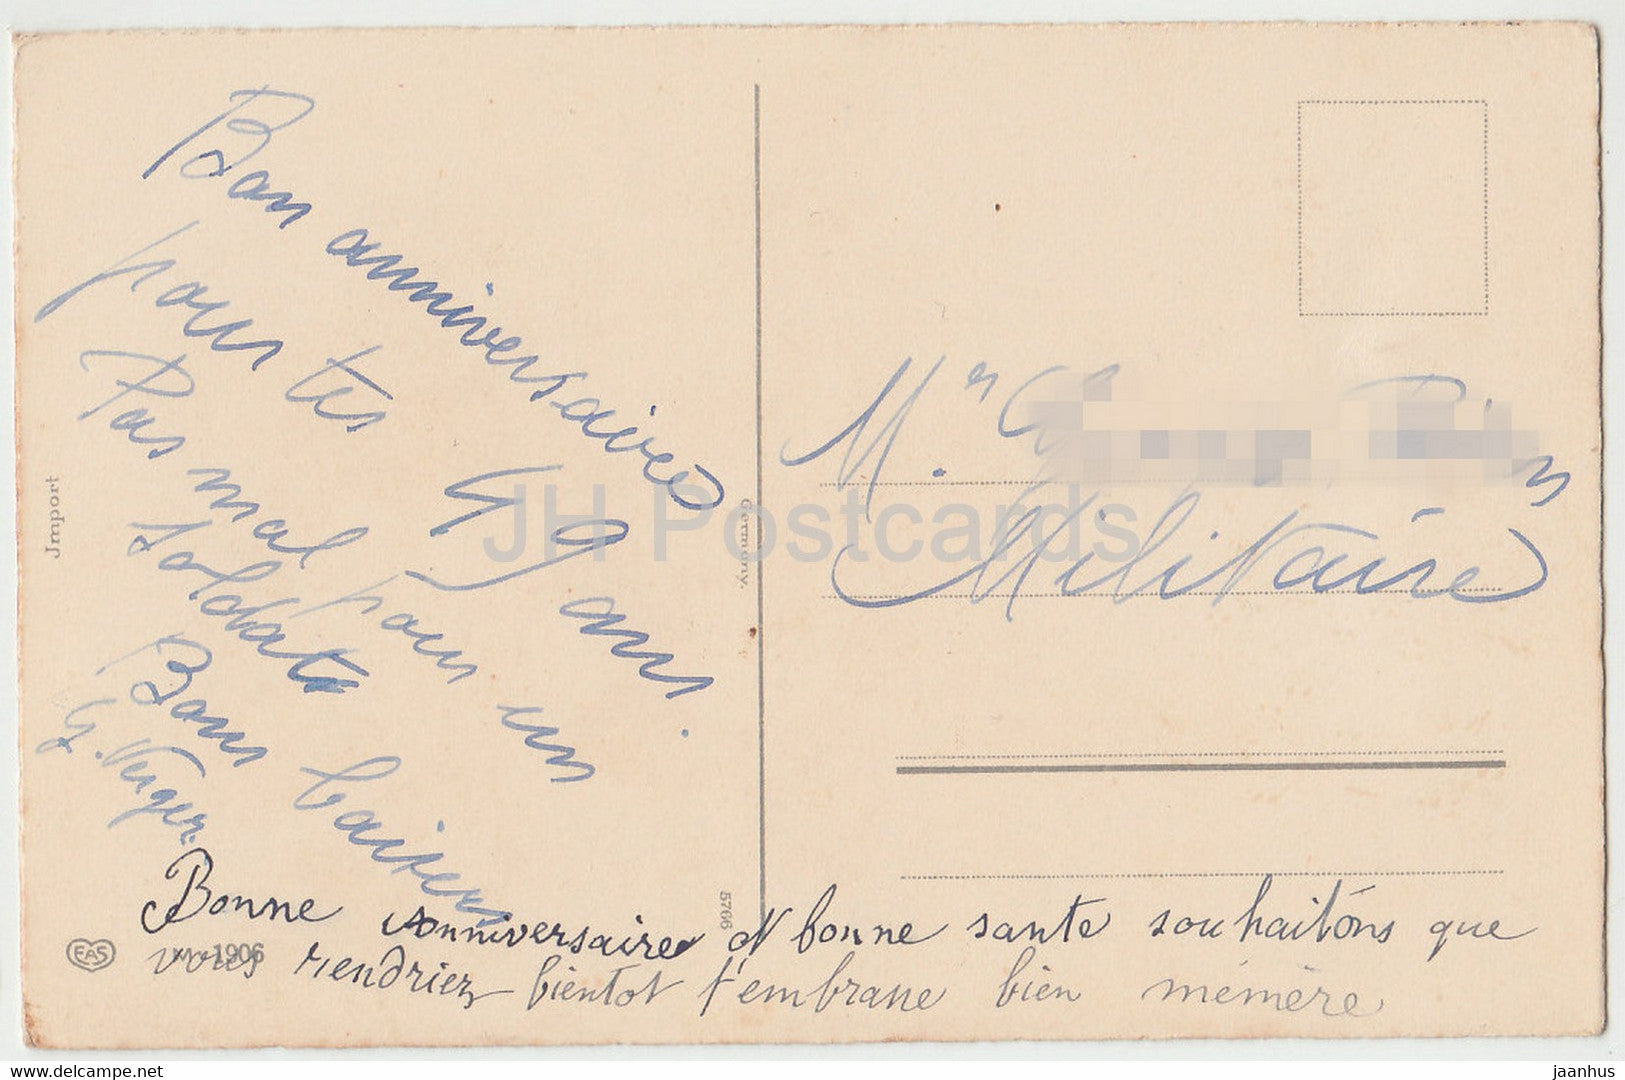 Bon anniversaire
pour tes 49 ans.
Pas mal pour un
soldat
Bons baisers
G. Verger.
Bonne Anniversaire et bonne sante souhaitons que
vous rendriez bientot t'embrasse bien mémère
Mr
Militaire
Jmport
Germany.
5766
EAS
1906
JH Postcards
delcampe.net
jaanhus